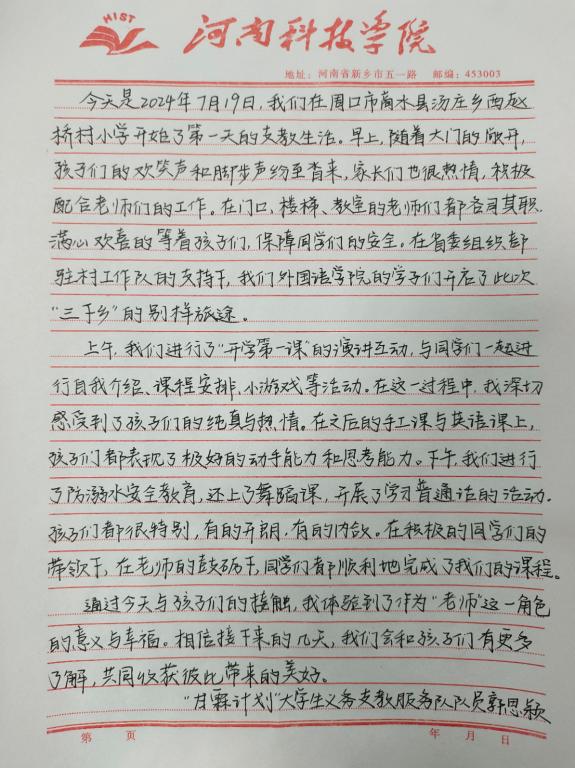 HIST
河南科技学院
地址：河南省新乡市五一路 邮编：453003
今天是2024年7月19日，我们在周口市商水县汤庄乡西赵
桥村小学开始了第一天的支教生活。早上，随着大门的敞开，
孩子们的欢笑声和脚步声纷至沓来，家长们也很热情，积极
配合老师们的工作。在门口、楼梯、教室的老师们都各司其职，
满心欢喜的等着孩子们，保障同学们的安全。在省委组织部
驻村工作队的支持下，我们外国语学院的学子们开启了此次
“三下乡”的别样旅途。
上午，我们进行了“开学第一课”的演讲互动，与同学们一起进
行自我介绍、课程安排、小游戏等活动。在这一过程中，我深切
感受到了孩子们的纯真与热情。在之后的手工课与英语课上，
孩子们都表现了极好的动手能力和思考能力。下午，我们进行
了防溺水安全教育，还上了舞蹈课，开展了学习普通话的活动。
孩子们都很特别，有的开朗，有的内敛。在积极的同学们的
带领下，在老师的鼓励下，同学们都顺利地完成了我们的课程。
通过今天与孩子们的接触，我体验到了作为“老师”这一角色
的意义与幸福。相信接下来的几天，我们会和孩子们有更多
了解，共同收获彼此带来的美好。
“甘霖计划”大学生义务支教服务队队员郭思颖
第 页 年 月 日